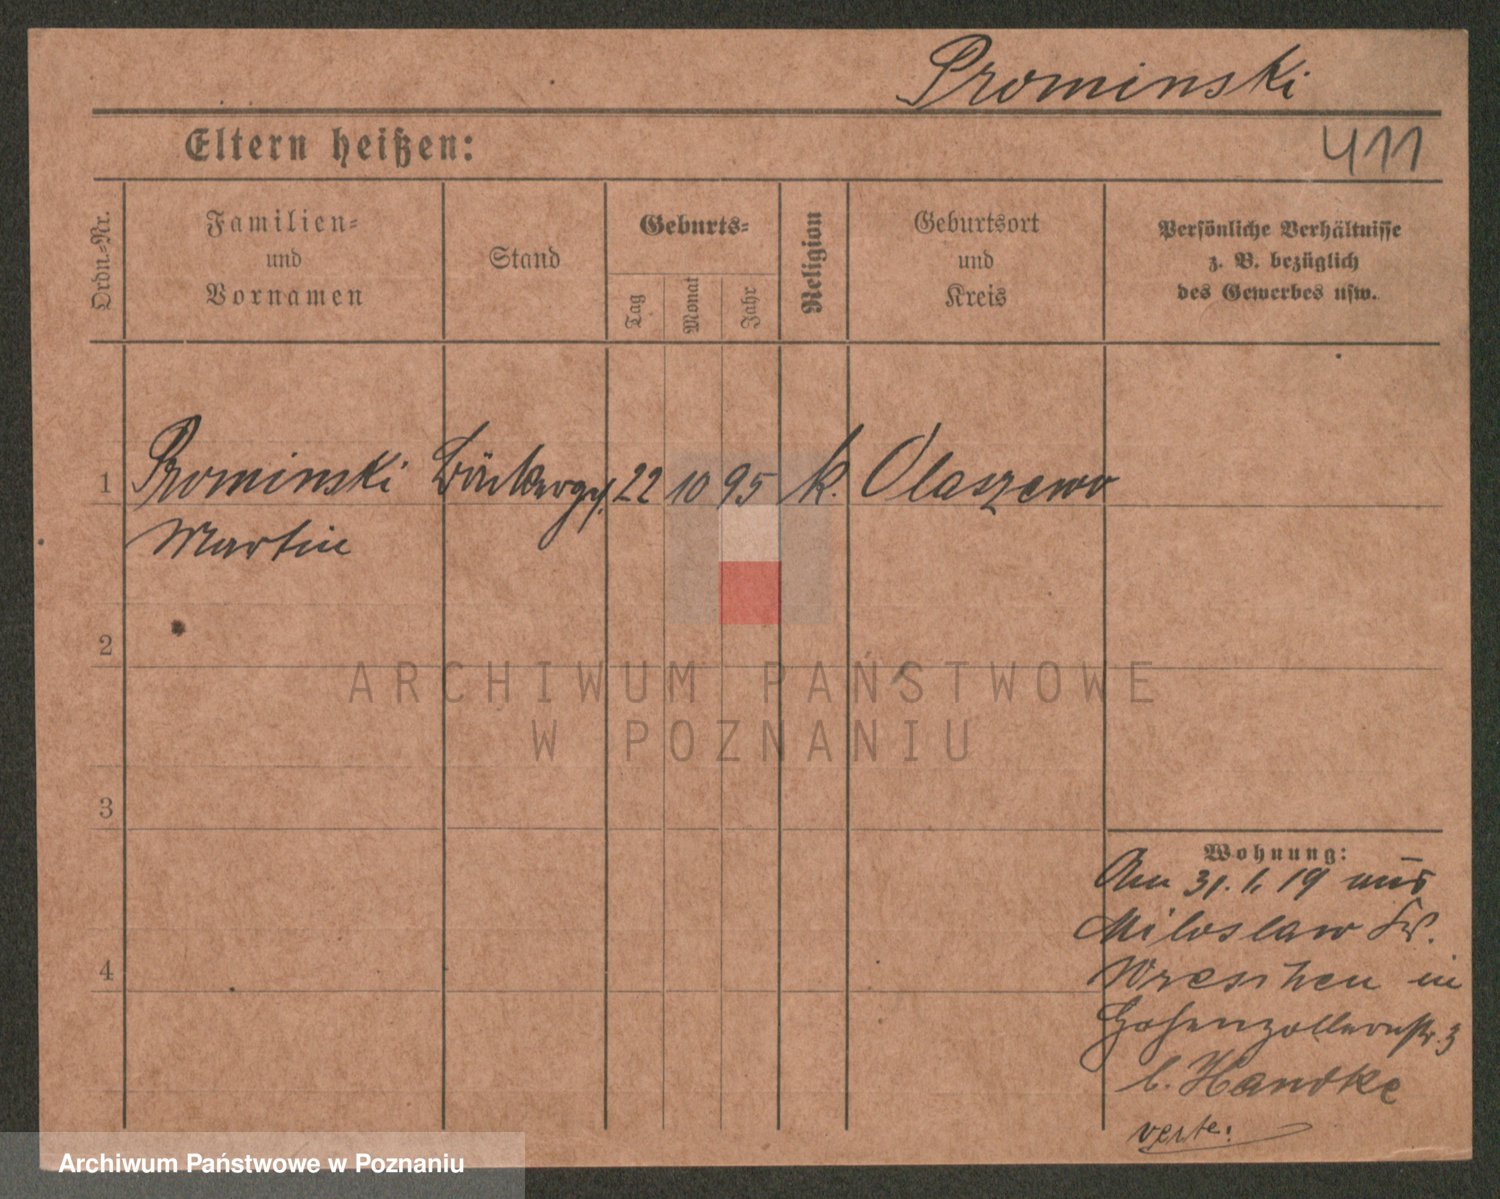 Prominski
411
Eltern heißen:
Ordn.-Nr.
Familien-
und
Vornamen
Stand
Geburts-
Tag
Monat
Jahr
Religion
Geburtsort
und
Kreis
Persönliche Verhältnisse
z. B. bezüglich
des Gewerbes usw.
1 Prominski Bäckerges. 22 10 95 k. Olaszewo
Martin
2
ARCHIWUM PAŃSTWOWE
W POZNANIU
3
Wohnung:
Am 31. 1. 19 aus
Miloslaw Kr.
Wreschen in
Hohenzollernstr. 3
b. Handke
verte!
4
Archiwum Państwowe w Poznaniu